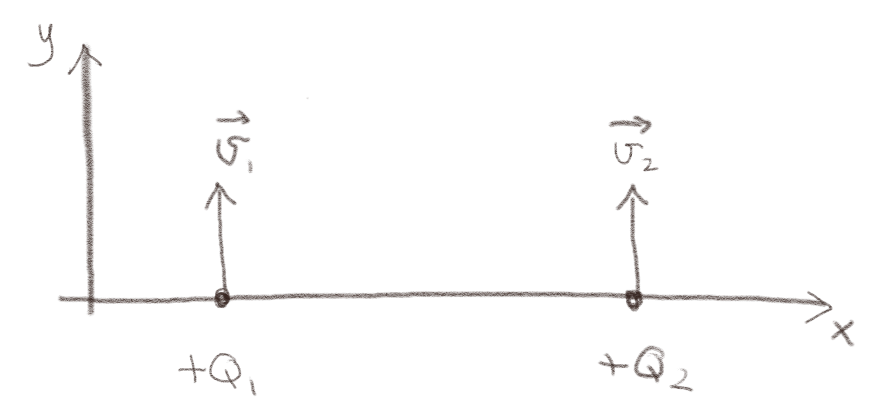 y
v⃗₁ v⃗₂
x
+Q₁ +Q₂